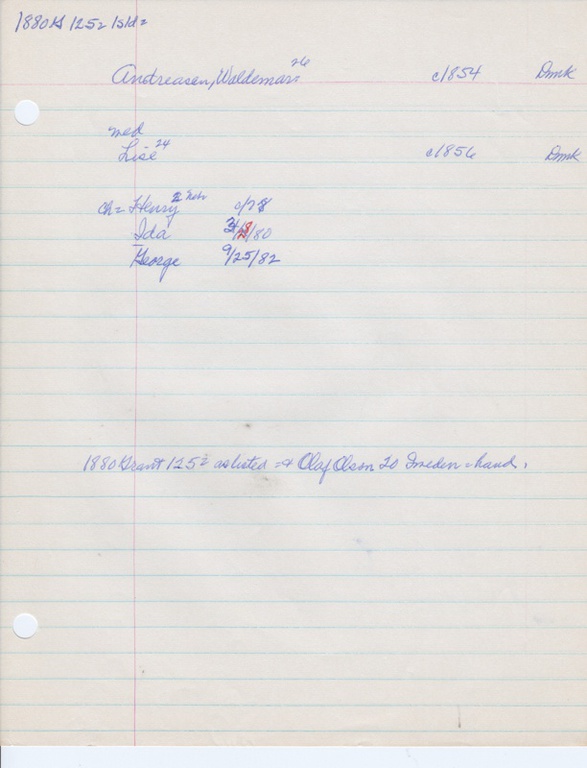 1880 G 125=
Andreasen, Waldemar 26 c1854 Dmk
med
Lise 24 c1856 Dmk
ch= Henry 2 Nebr c/78
Ida /80
George 9/25/82
1880 Grant 125= as listed = & Olaf Olson 20 Sweden = hand.